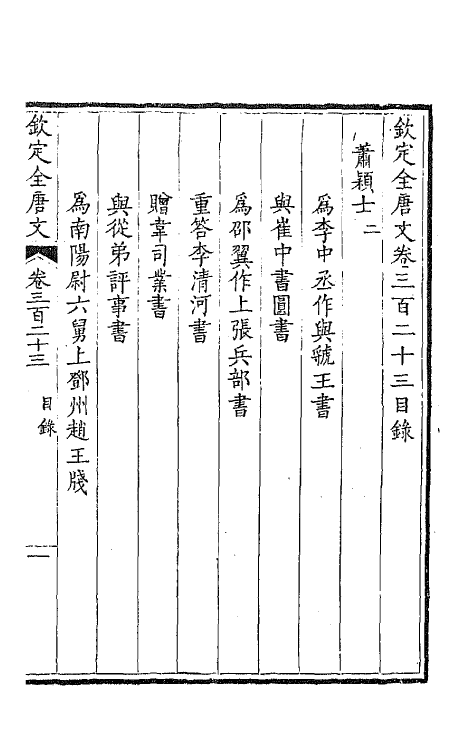 欽定全唐文卷三百二十三目錄
蕭穎士二
爲李中丞作與虢王書
與崔中書圓書
爲邵翼作上張兵部書
重答李清河書
贈韋司業書
與從弟評事書
爲南陽尉六舅上鄧州趙王牋
欽定全唐文 卷三百二十三 目錄 一